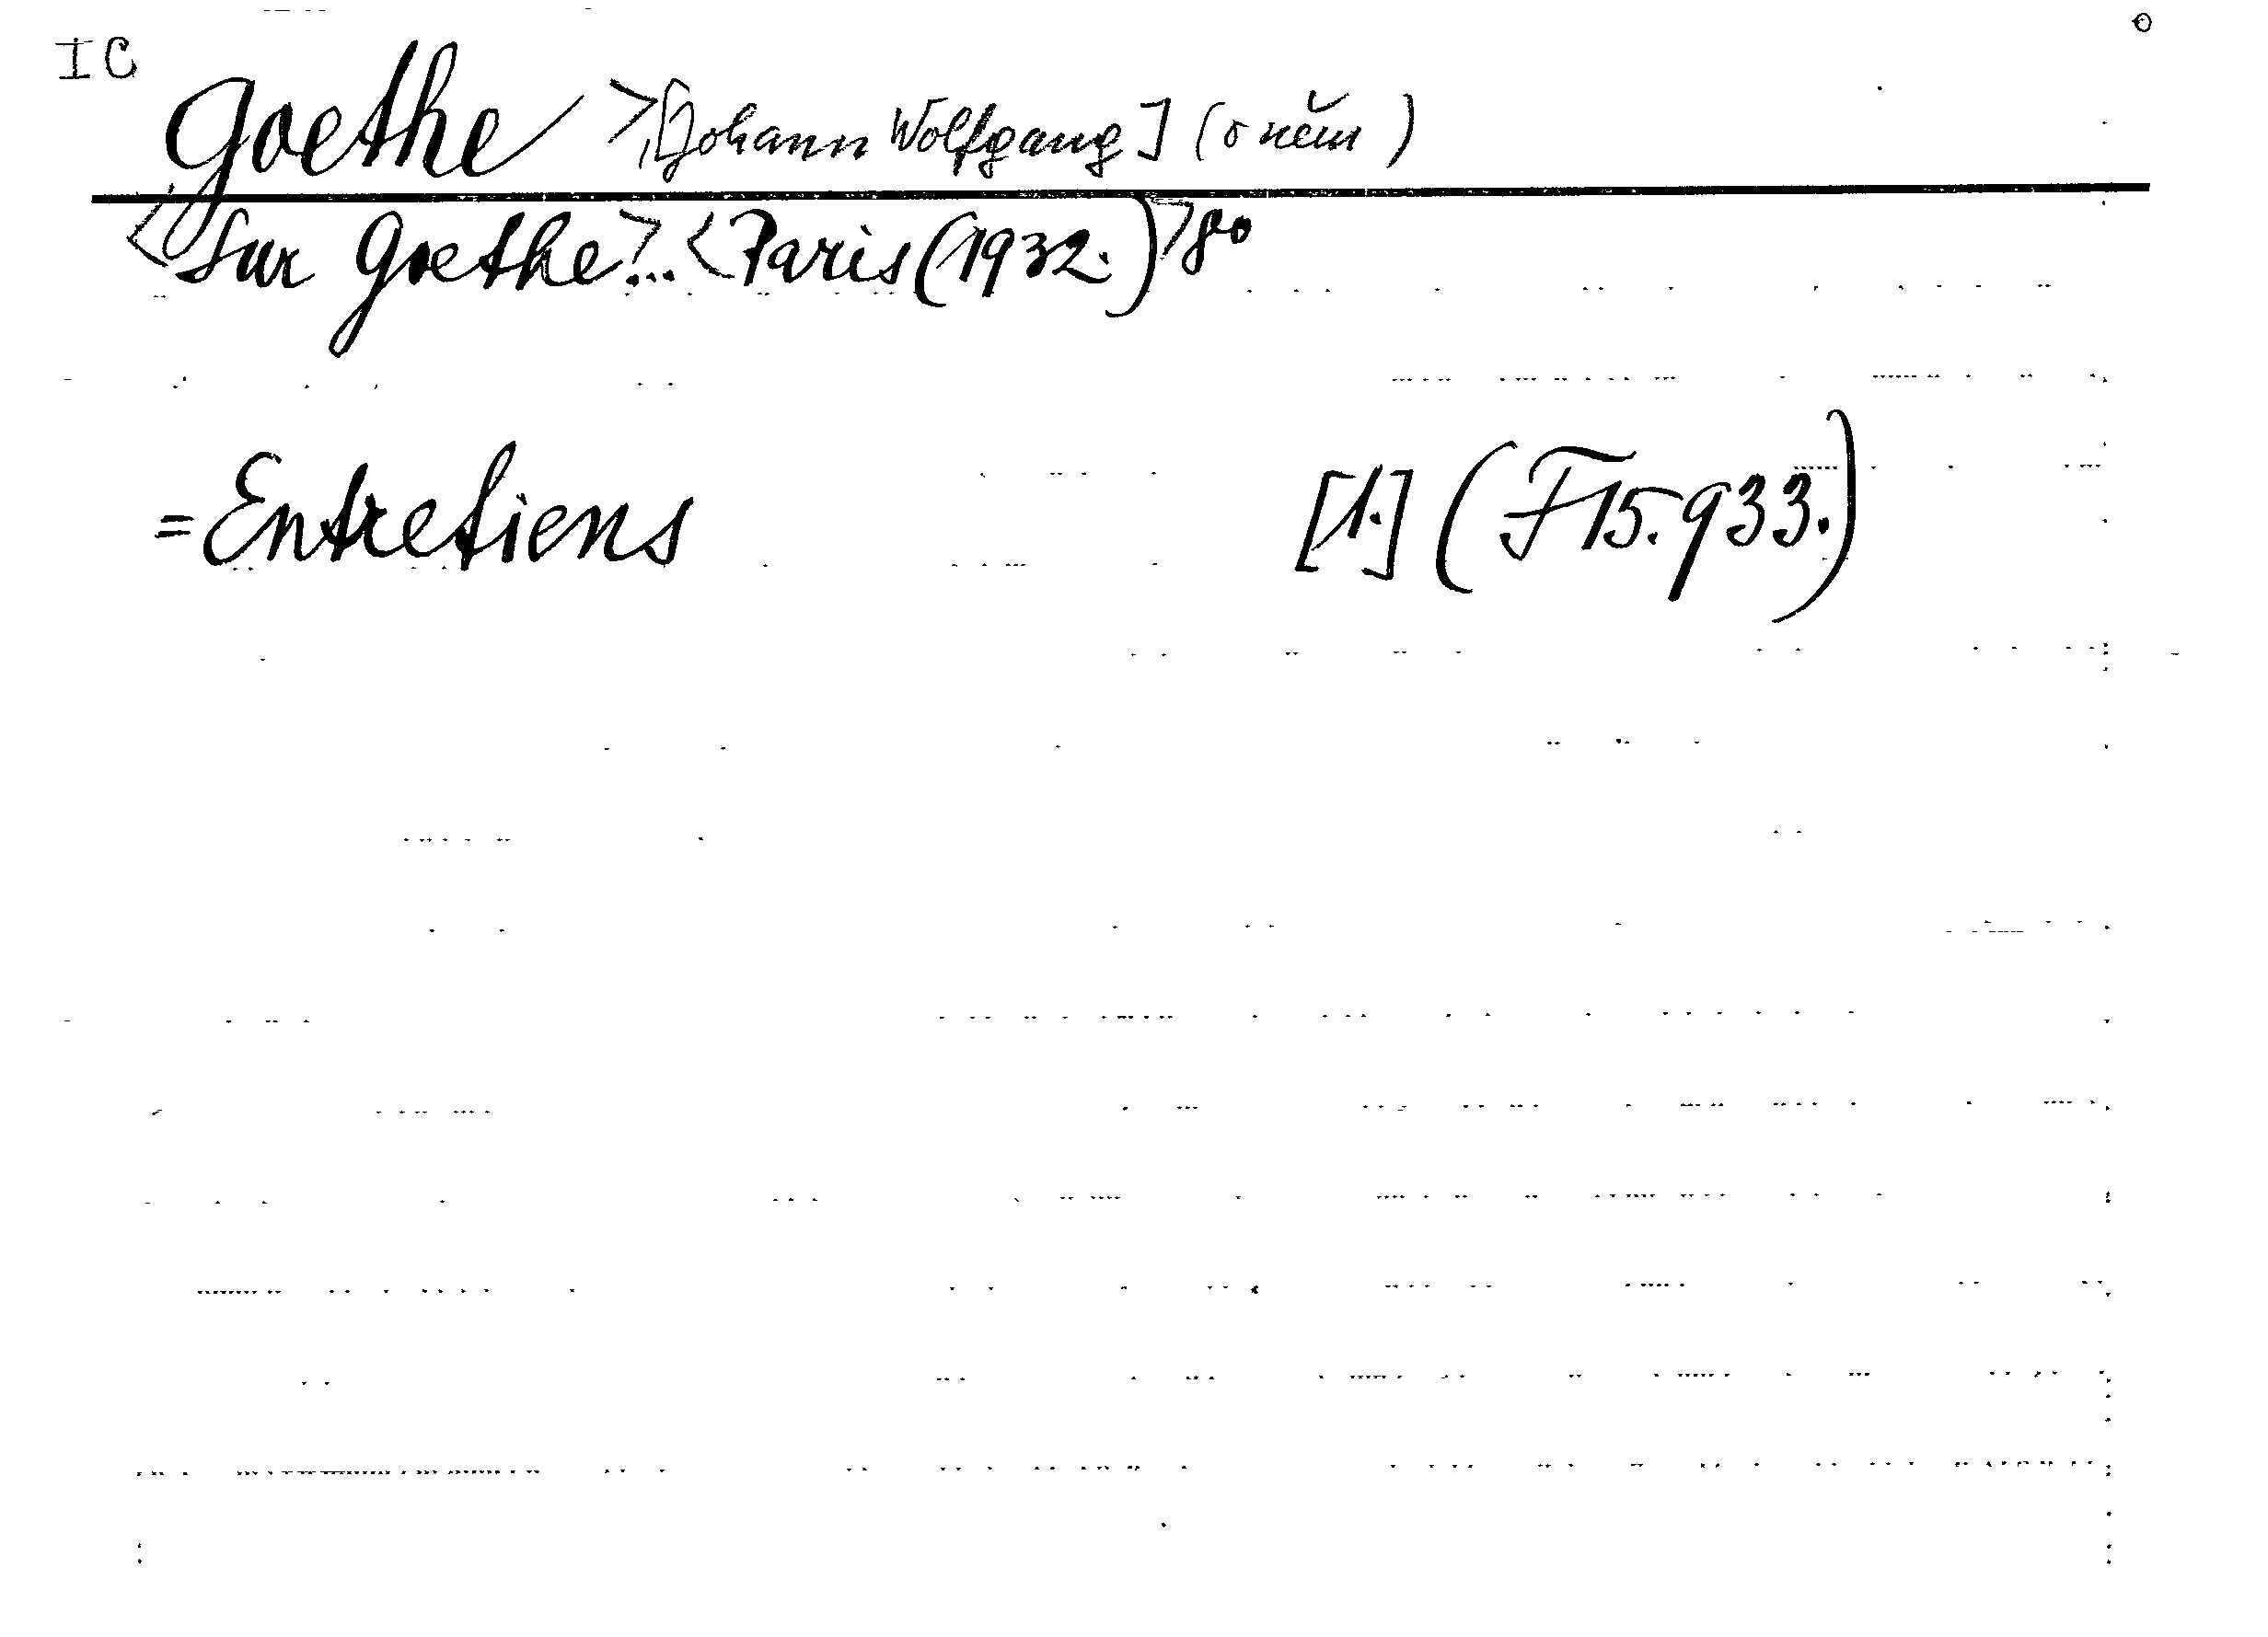 IC
Goethe >,[Johann Wolfgang] (o něm)
<Sur Goethe>... <Paris (1932.)> 8°
=Entretiens [1.] (F15.933.)